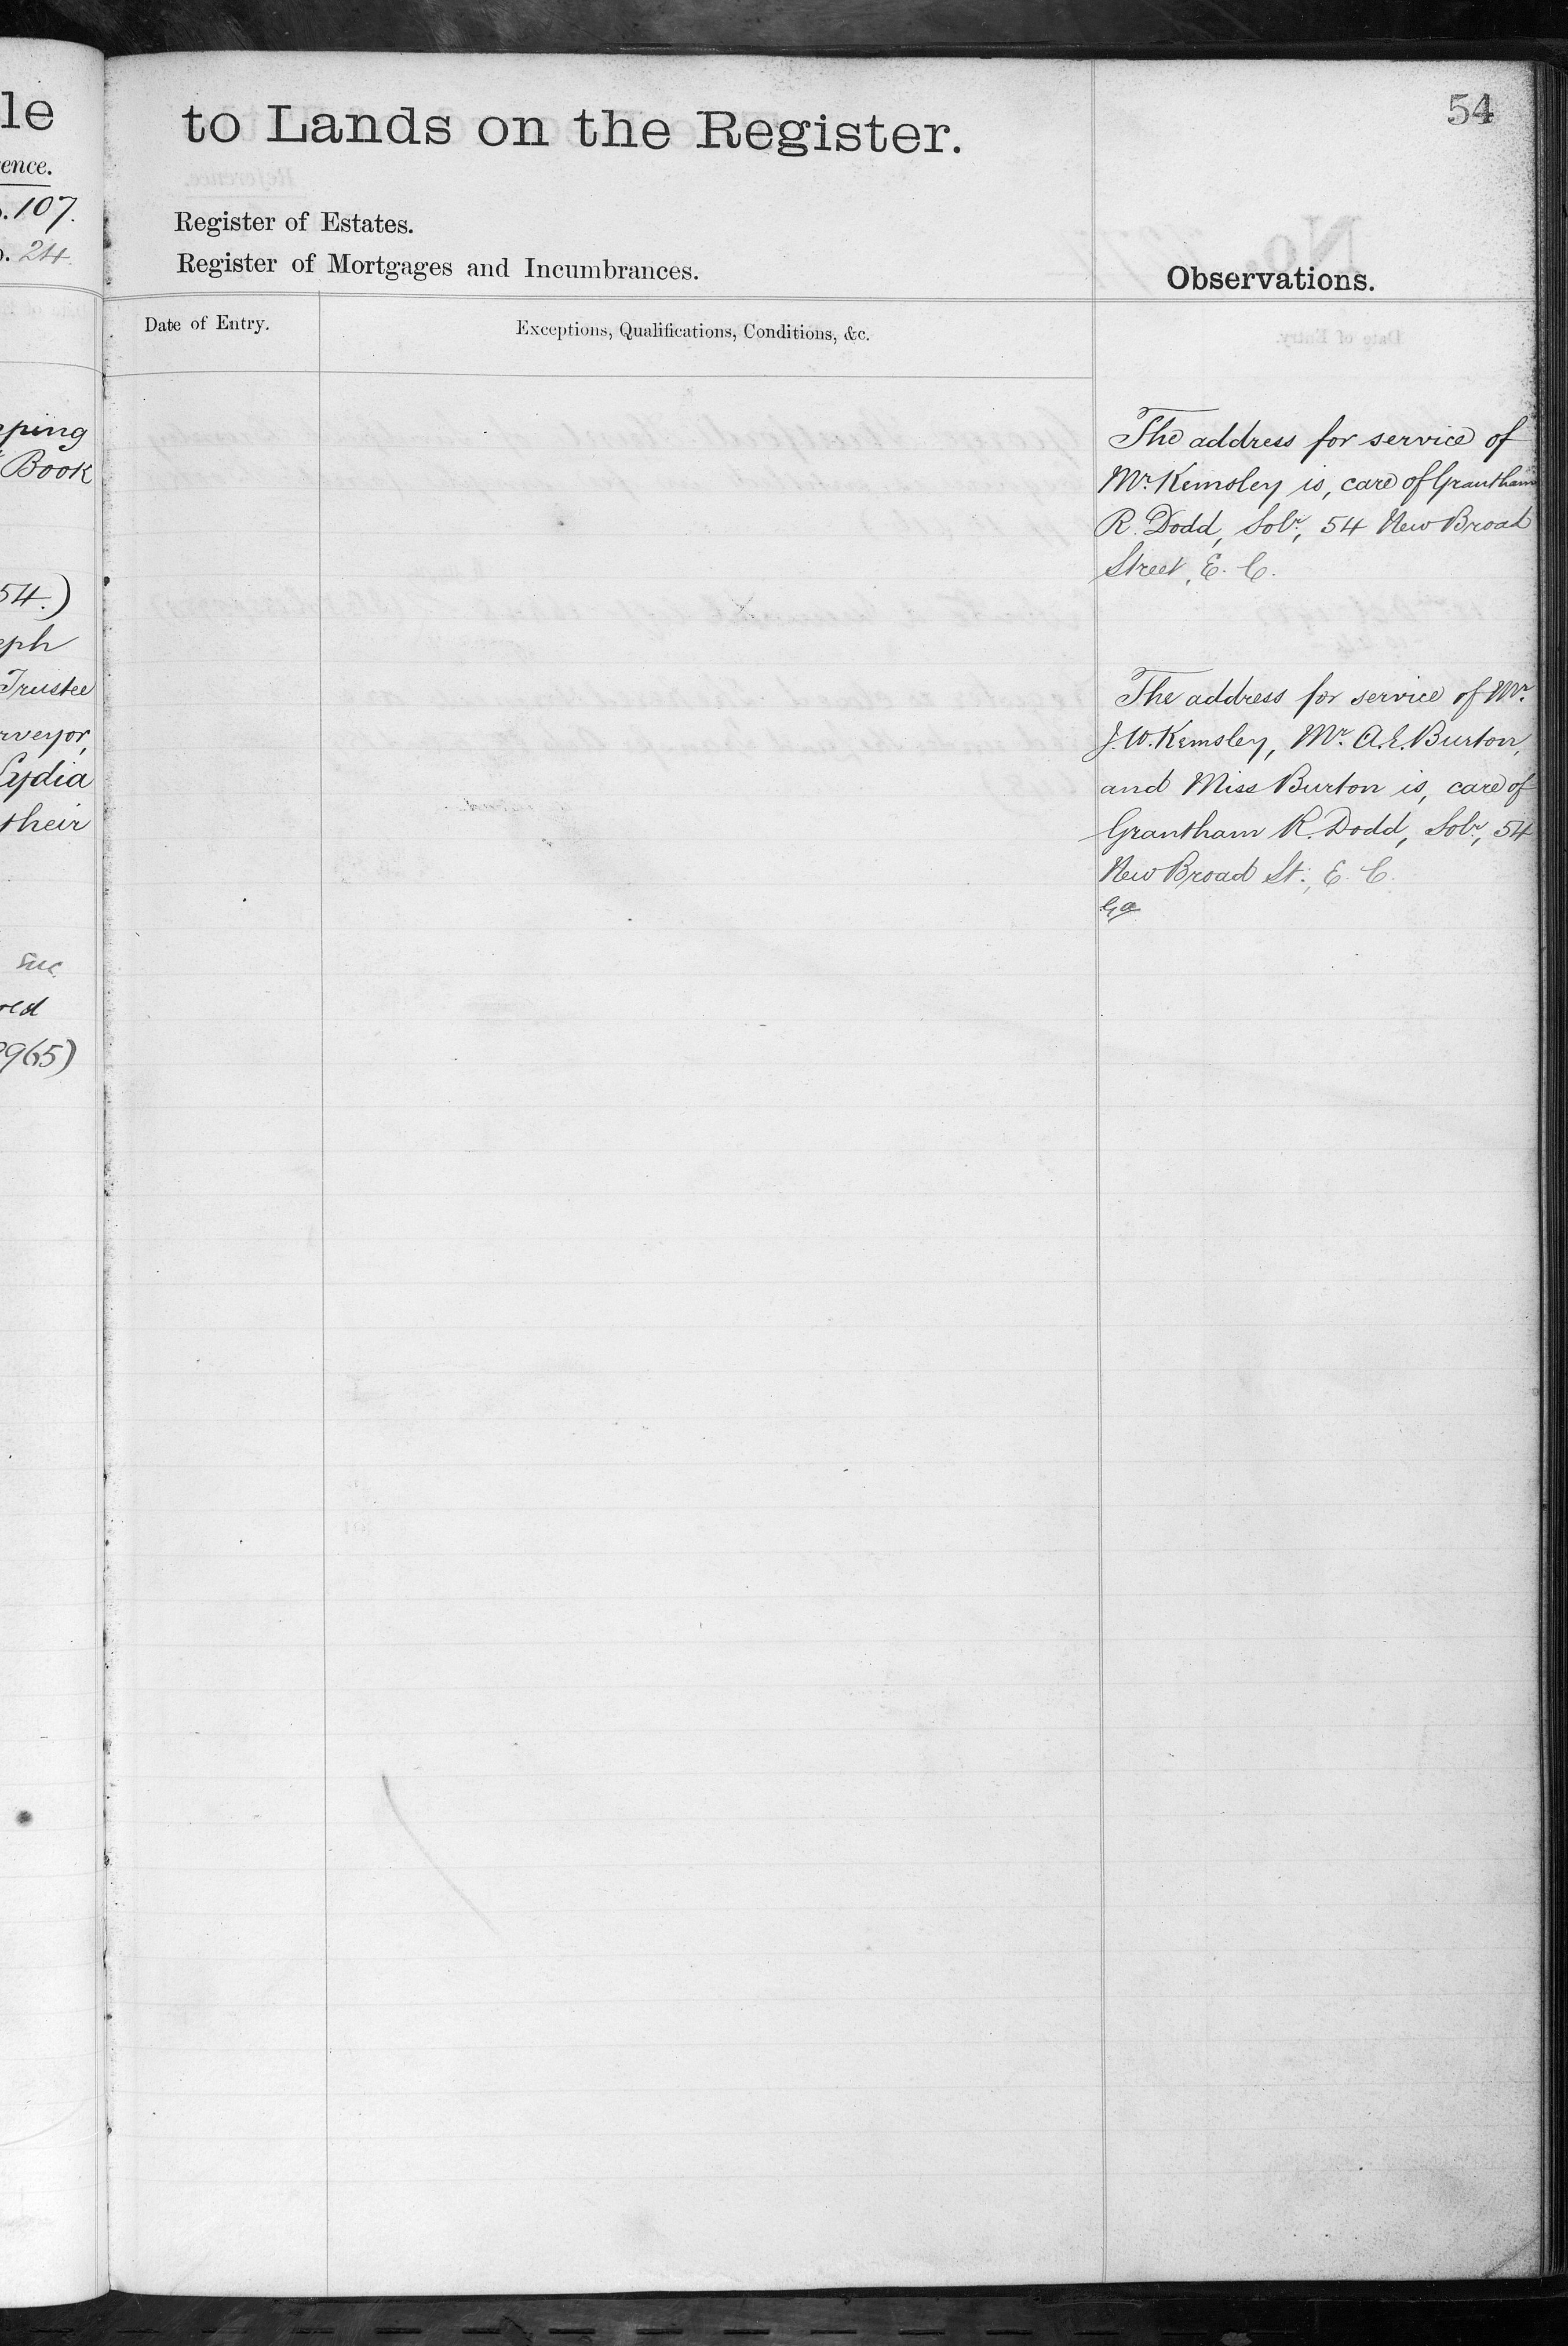 le
ence.
.107.
. 24.
pping
Book
54.)
eph
Trustee
rveyor,
Lydia
their
red
9965)
to Lands on the Register.
54
Register of Estates.
Register of Mortgages and Incumbrances.
Observations.
Date of Entry.
Exceptions, Qualifications, Conditions, &c.
The address for service of
Mr. Kemsley is, care of Grantham
R. Dodd, Solr., 54 New Broad
Street, E. C.
The address for service of Mr.
J. W. Kemsley, Mr. A. E. Burton,
and Miss Burton is, care of
Grantham R. Dodd, Solr., 54
New Broad St., E. C.